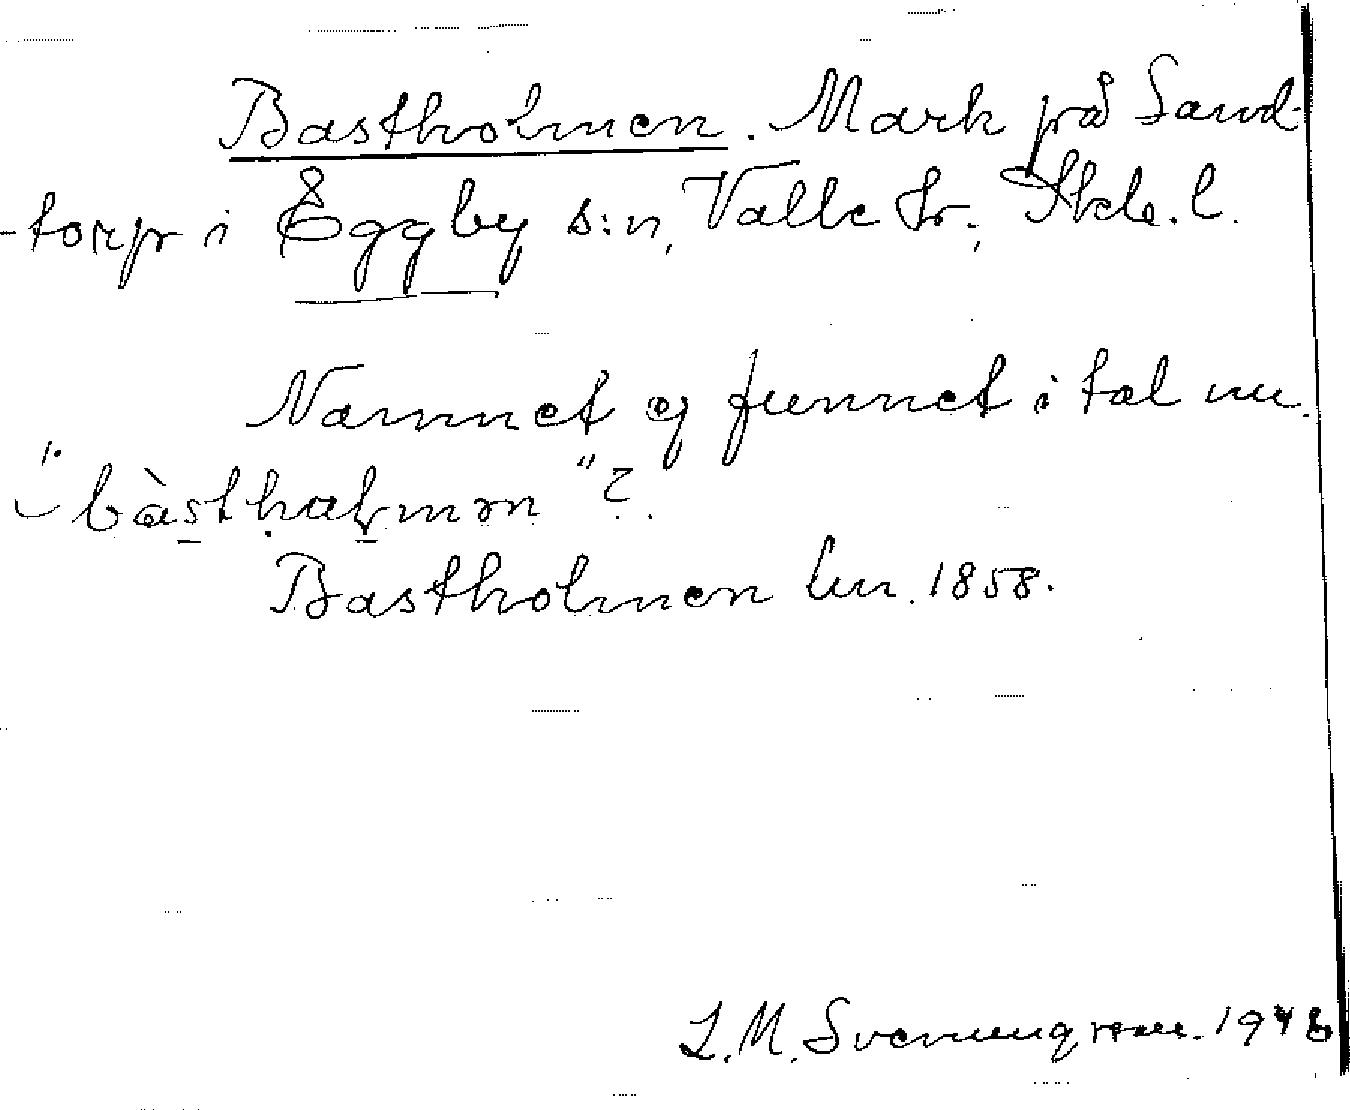 Bastholmen. Mark på Sand-
-torp i Eggby s:n, Valle hr., Skb. l.
Namnet ej funnet i tal nu.
"bàsthaɫmən"?
Bastholmen lm. 1858.
L. M. Svenungsson. 1946